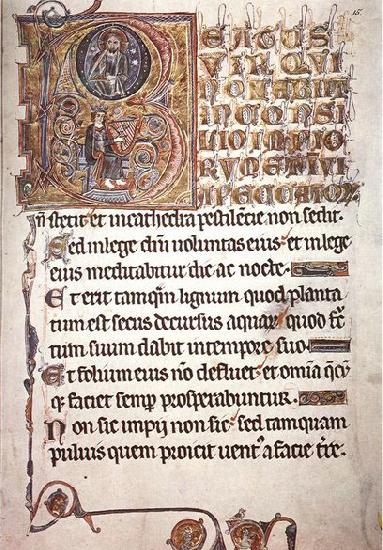 15.
BEATUS
VIR QUI
NON ABIIT
IN CONSI
LIO IMPIO
RUM ET IN VI
A PECCATOR
ñ stetit et in cathedra pestilēcie non sedit.
Sed in lege dñi voluntas eius: et in lege
eius meditabitur die ac nocte.
Et erit tamq̄m lignum quod planta
tum est secus decursus aquar: quod fc̄
tum suum dabit in tempore suo.
Et folium eius nō defluet: et om̄ia q̄cū
q; faciet semp̲ prosperabuntur.
Non sic impij non sic: sed tamquam
puluis quem proicit uentꝰ a facie tr̄e.